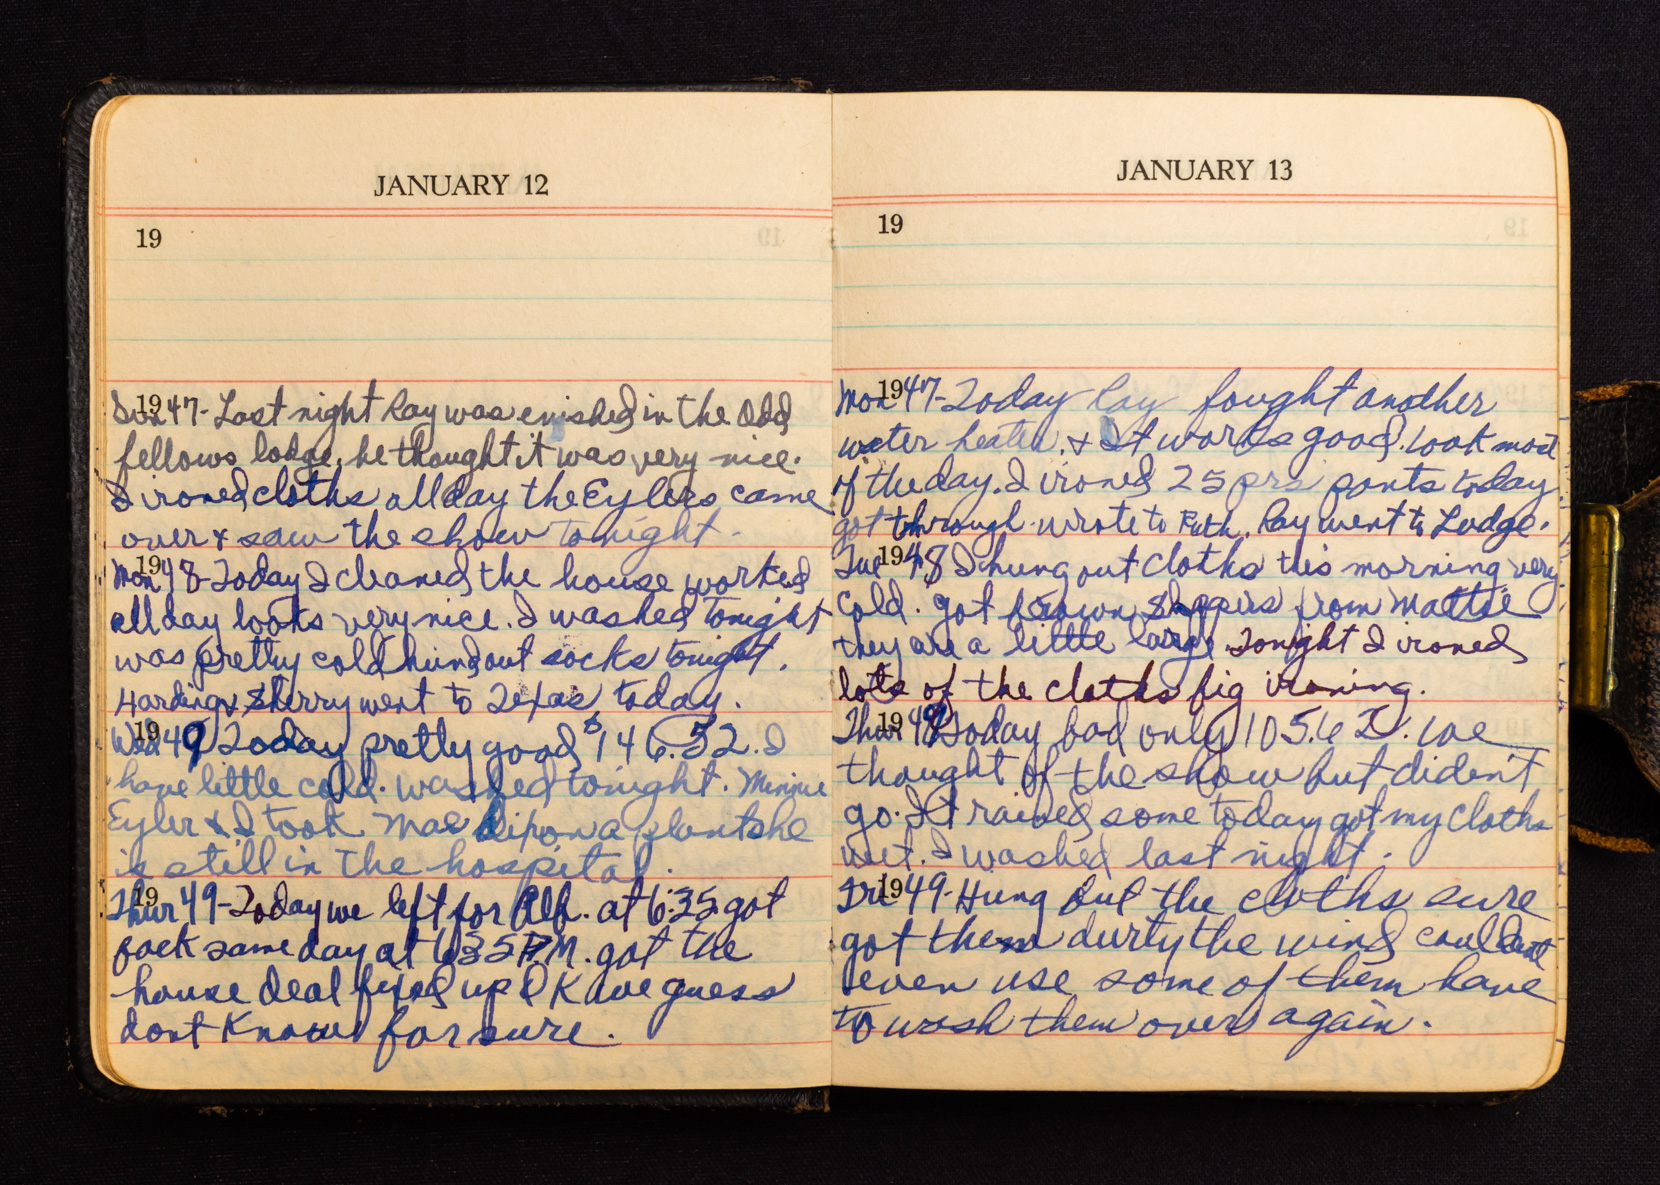 JANUARY 12
19
19
Sun 47- Last night Ray was enished in the Odd
fellows lodge, he thought it was very nice.
I ironed cloths all day the Eylers came
over & saw the show tonight.
19
Mon 48- Today I cleaned the house worked
all day looks very nice. I washed tonight
was pretty cold hung out socks tonight.
Harding & Sherry went to Texas today.
19
Wed 49 Today pretty good $146.52. I
have little cold. washed tonight. Minnie
Eyler & I took Mae a plant she
is still in the hospital.
19
Thur 49- Today we left for Alb. at 6:35 got
back same day at 6:35 P.M. got the
house deal fixed up O K we guess
dont know for sure.
JANUARY 13
19
19
Mon 47- Today Ray fought another
water heater. & It works good. took most
of the day. I ironed 25 prs pants today
got through. wrote to Ruth. Ray went to Lodge.
19
Tue 48 I hung out cloths this morning very
cold. got brown slippers from Mattie
they are a little large. Tonight I ironed
lots of the cloths big ironing.
19
Thur 49 Today bad only 105.62. we
thought of the show but diden't
go. It rained some today got my cloths
wet. I washed last night.
19
Fri 49- Hung out the cloths sure
got them durty the wind
even use some of them have
to wash them over again.